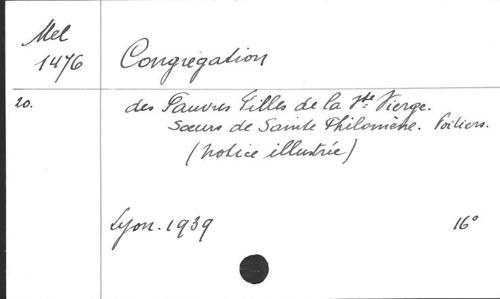 Mel
1476
Congrégation
20.
des Pauvres Filles de la Ste Vierge.
Sœurs de Sainte Philomène. Poitiers.
(notice illustrée)
Lyon. 1939
16°